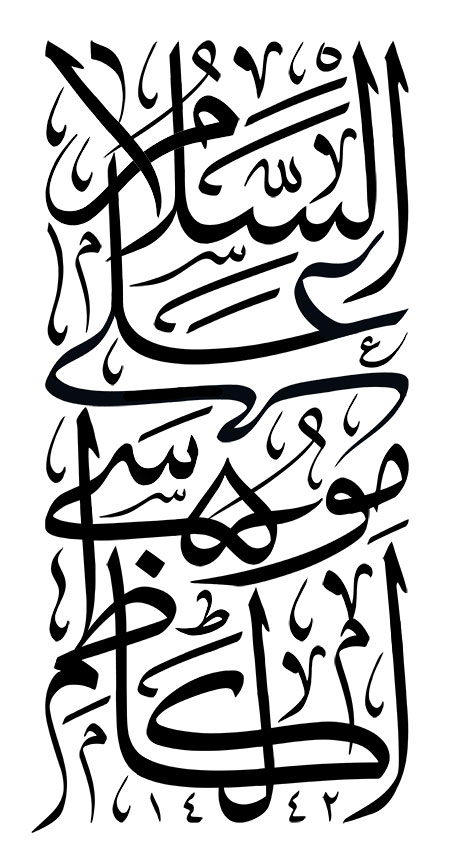 السَّلَامُ
عَلَى
مُوسَى
الكَاظِمِ
١٤٤٢